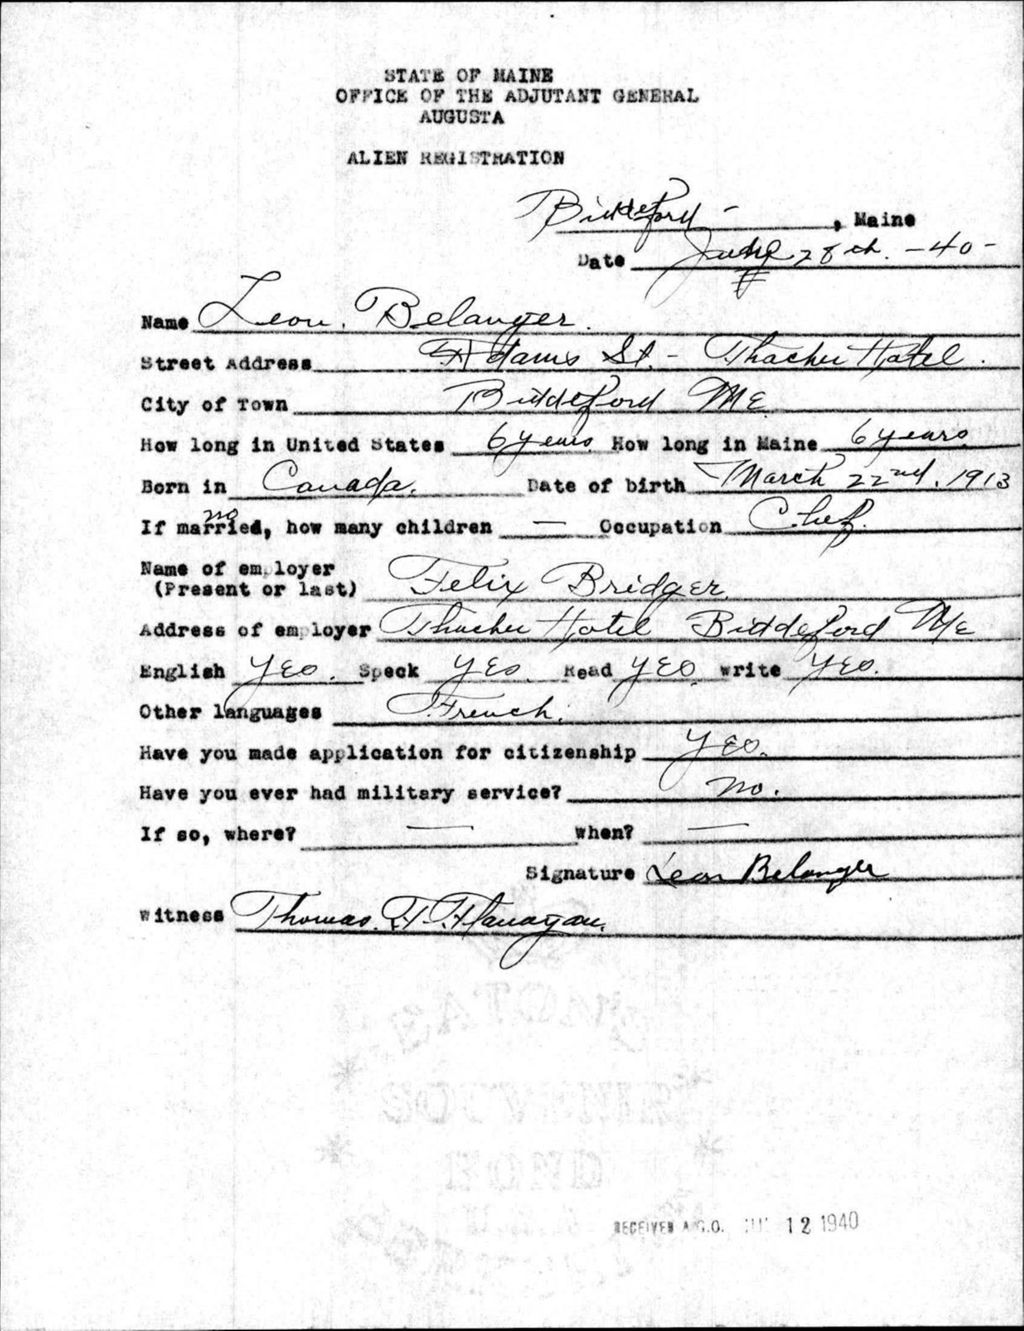 STATE OF MAINE
OFFICE OF THE ADJUTANT GENERAL
AUGUSTA
ALIEN REGISTRATION
Biddeford - , Maine
Date 28th. - 40 -
Name Leon. Belanger.
Street Address Adams St. - Thacher Hotel.
City of Town Biddeford ME.
How long in United States 6 years. How long in Maine 6 years
Born in Canada. Date of birth March 22nd. 1913
no
If married, how many children — Occupation Chef.
Name of employer
(Present or last) Felix Bridger.
Address of employer Thacher Hotel Biddeford ME
English Yes. Speck Yes. Read Yes. Write Yes.
Other languages French.
Have you made application for citizenship Yes.
Have you ever had military service? no.
If so, where? — When? —
Signature Leon Belanger
Witness Thomas. H. Flanagan.
RECEIVED A.G.O. 12 1940